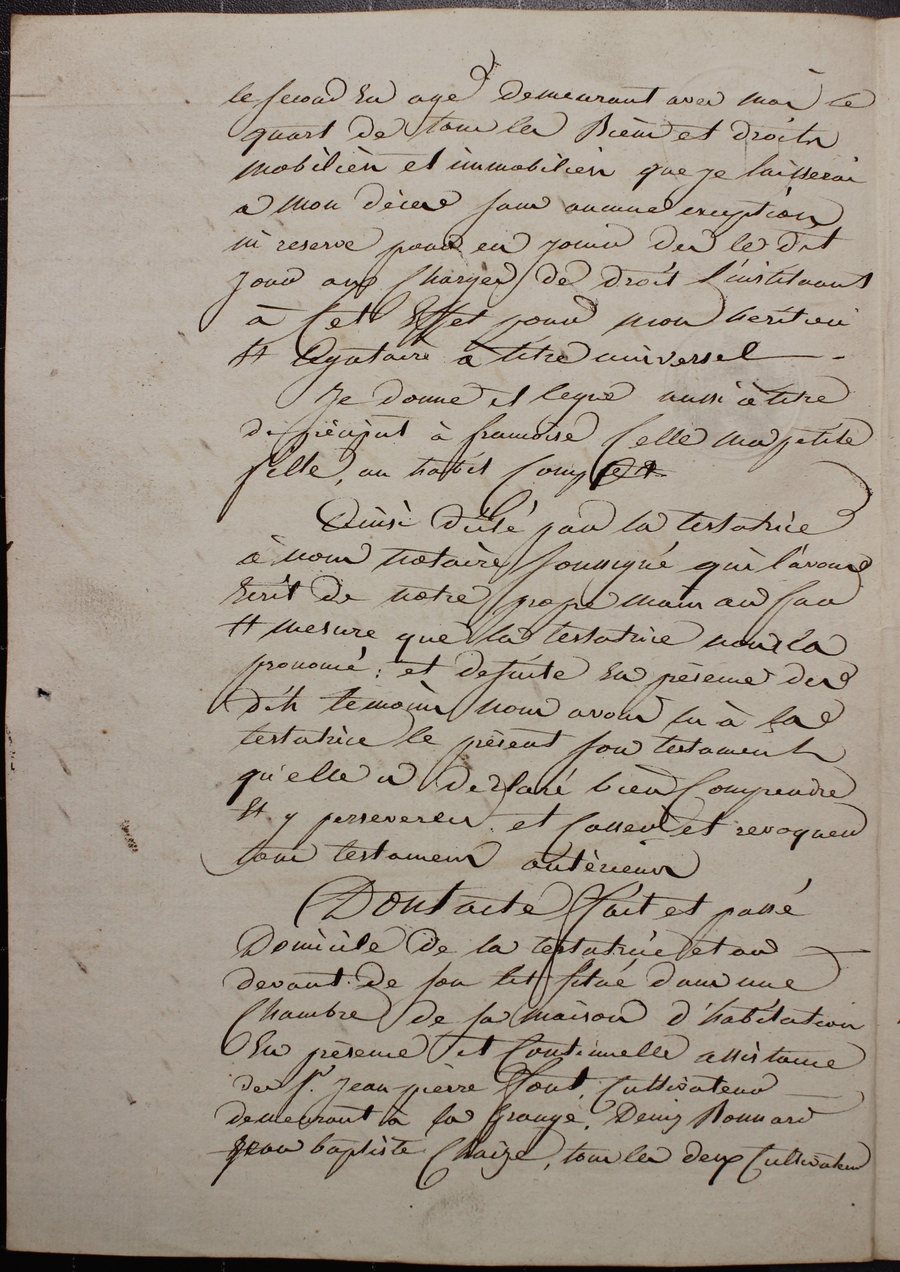 le second en age demeurant avec moi le
quart de tous les Biens et droits
mobiliers et immobiliers que je laisserai
a mon décès sans aucune exception
ni reserve pour en jouir dès le dit
jour aux Charges de droit l'instituant
à Cet Effet pour mon héritier
et légataire à titre universel
Je donne et legue aussi à titre
de préciput à françoise Celle ma petite
fille, un habit Complet
Ainsi dicté par la testatrice
à nous notaire soussigné qui l'avons
Ecrit de notre propre main au fur
et mesure que la testatrice nous la
prononcé ; et de suite En présence des
dits temoins nous avons lu à la
testatrice le présent son testament
qu'elle a déclaré bien Comprendre
et y perseverer et Casser et revoquer
tous testamens antérieurs
Dont acte fait et passé
Domicile de la testatrice et au
devant de son lit situé dans une
Chambre de sa maison d'habitation
En présence et Continuelle assistance
des Sr. Jean pierre font, Cultivateur
demeurant à la Grange, Denis Bonnard
Jean baptiste Chaize, tous les deux Cultivateurs